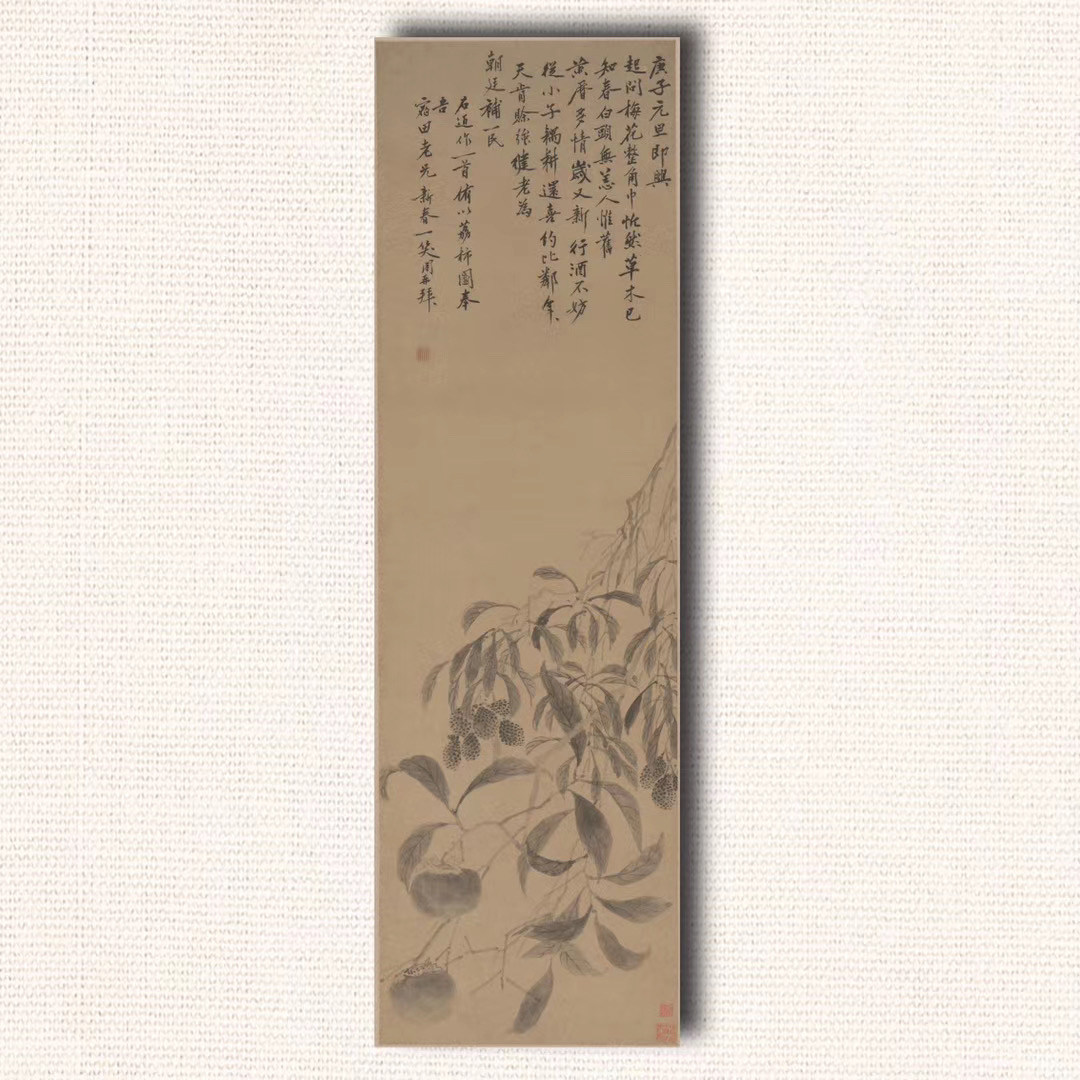 庚子元旦即興
起問梅花整角巾恍然草木已
知春白頭無恙人惟舊
黃曆多情歲又新行酒不妨
從小子耦耕還喜約比鄰年々
天肯賒強健老為
朝廷補一民
右近作一首侑以荔柿圖奉
吾
宿田老兄新春一笑周再拜